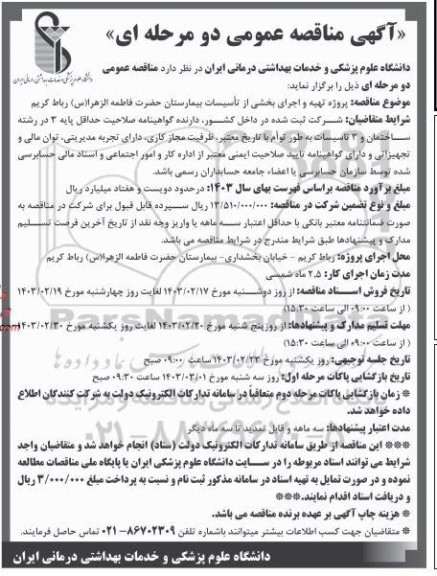 «آگهی مناقصه عمومی دو مرحله ای»
دانشگاه علوم پزشکی و خدمات بهداشتی درمانی ایران در نظر دارد مناقصه عمومی
دو مرحله ای ذیل را برگزار نماید:
موضوع مناقصه: پروژه تهیه و اجرای بخشی از تأسیسات بیمارستان حضرت فاطمه الزهرا(س) رباط کریم
شرایط متقاضیان: شرکت ثبت شده در داخل کشور، دارنده گواهینامه صلاحیت حداقل پایه ۳ در رشته
ساختمان و ۳ تاسیسات به طور توام با تاریخ معتبر، ظرفیت مجاز کاری، دارای تجربه مدیریتی، توان مالی و
تجهیزاتی و دارای گواهینامه تایید صلاحیت ایمنی معتبر از اداره کار و امور اجتماعی و اسناد مالی حسابرسی
شده توسط سازمان حسابرسی یا اعضاء جامعه حسابداران رسمی باشد.
مبلغ برآورد مناقصه براساس فهرست بهای سال ۱۴۰۳: درحدود دویست و هفتاد میلیارد ریال
مبلغ و نوع تضمین شرکت در مناقصه: ۱۳/۵۱۰/۰۰۰/۰۰۰ ریال سپرده قابل قبول برای شرکت در مناقصه به
صورت ضمانتنامه معتبر بانکی با حداقل اعتبار سه ماهه یا واریز وجه نقد از تاریخ آخرین فرصت تسلیم
مدارک و پیشنهادها طبق شرایط مندرج در شرایط مناقصه می باشد.
محل اجرای پروژه: رباط کریم - خیابان بخشداری- بیمارستان حضرت فاطمه الزهرا(س) رباط کریم
مدت زمان اجرای کار: ۲.۵ ماه شمسی
تاریخ فروش اسناد مناقصه: از روز دوشنبه مورخ ۱۴۰۳/۰۲/۱۷ لغایت روز چهارشنبه مورخ ۱۴۰۳/۰۲/۱۹
( از ساعت ۰۹:۰۰ الی ساعت ۱۵:۳۰)
مهلت تسلیم مدارک و پیشنهادها: از روز پنج شنبه مورخ ۱۴۰۳/۰۲/۲۰ لغایت روز یکشنبه مورخ ۱۴۰۳/۰۲/۳۰
( از ساعت ۰۹:۰۰ الی ساعت ۱۵:۳۰)
تاریخ جلسه توجیهی: روز یکشنبه مورخ ۱۴۰۳/۰۲/۲۳ ساعت ۰۹:۰۰ صبح
تاریخ بازگشایی پاکات مرحله اول: روز سه شنبه مورخ ۱۴۰۳/۰۳/۰۱ ساعت ۰۹:۳۰ صبح
* زمان بازگشایی پاکات مرحله دوم متعاقباً در سامانه تدارکات الکترونیک دولت به شرکت کنندگان اطلاع
داده خواهد شد.
مدت اعتبار پیشنهادها: سه ماهه و قابل تمدید تا سه ماه دیگر
*** این مناقصه از طریق سامانه تدارکات الکترونیک دولت (ستاد) انجام خواهد شد و متقاضیان واجد
شرایط می توانند اسناد مربوطه را در سایت دانشگاه علوم پزشکی ایران یا پایگاه ملی مناقصات مطالعه
نموده و در صورت تمایل به تهیه اسناد در سامانه مذکور ثبت نام و نسبت به پرداخت مبلغ ۳/۰۰۰/۰۰۰ ریال
و دریافت اسناد اقدام نمایند.***
* هزینه چاپ آگهی بر عهده برنده مناقصه می باشد.
* متقاضیان جهت کسب اطلاعات بیشتر میتوانند باشماره تلفن ۸۶۷۰۲۳۰۹-۰۲۱ تماس حاصل فرمایند.
دانشگاه علوم پزشکی و خدمات بهداشتی درمانی ایران